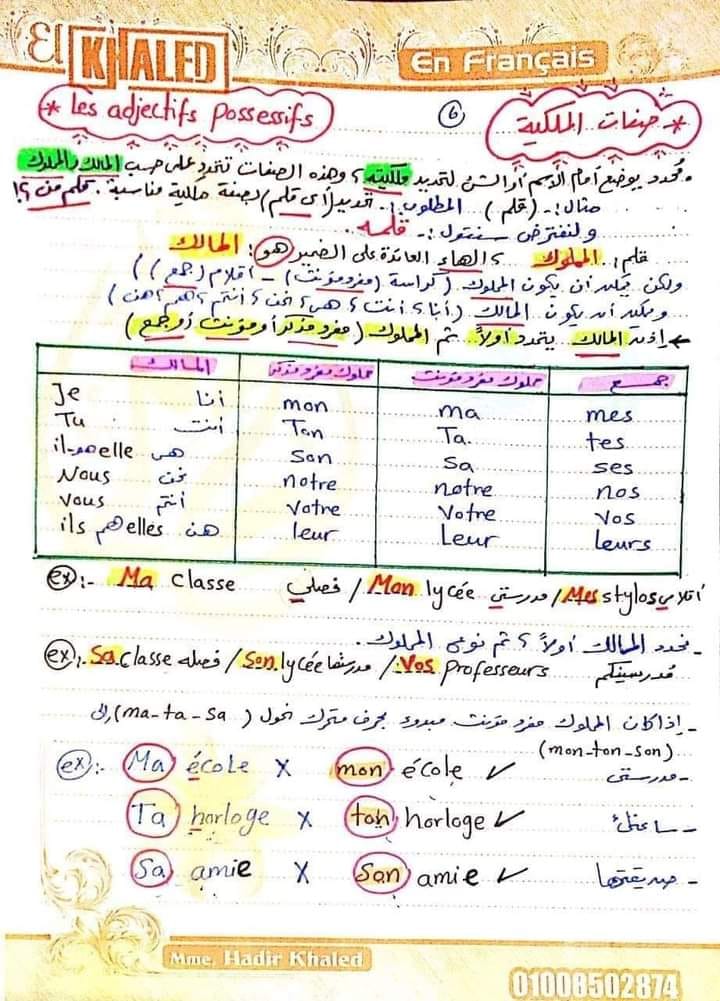 El KHALED
En Français
* Les adjectifs possessifs
6
* صفات الملكية
• محدد يوضع أمام الاسم أو الشئ لتحديد ملكيته، وهذه الصفات تتحدد على حسب المالك والمملوك
مثال:- (قلم) المطلوب:- تحديد (أى قلم) بصفة ملكية مناسبة. قلم من؟!
ولنفترض سنقول:- قلمه
قلم:. المملوك ، الهاء العائدة على الضمير هو: المالك
ولكن يمكن أن يكون المملوك (كراسة (مفرد مؤنث) - أقلام (جمع))
ويمكن أن يكون المالك (أنا، أنت، هى، نحن، أنتم، هم، هن)
← إذن المالك يتحدد أولاً.. ثم المملوك (مفرد مذكر أو مؤنث أو جمع)
المالك مملوك مفرد مذكر مملوك مفرد مؤنث جمع
Je أنا mon ma mes
Tu أنت Ton Ta tes
il هو elle هى Son Sa ses
Nous نحن notre notre nos
vous أنتم Votre Votre vos
ils هم elles هن leur Leur leurs
ex:- Ma classe فصلي / Mon lycée مدرستي / Mes stylos أقلامي
- نحدد المالك أولاً، ثم نوعى المملوك.
ex:. Sa classe فصله / Son lycée مدرستها / Vos professeurs مدرسينكم
- إذا كان المملوك مفرد مؤنث مبدوء بحرف متحرك نحول (ma-ta-sa) إلى
(mon-ton-son)
ex:- Ma école X mon école ✓ - مدرستى
Ta horloge X ton horloge ✓ - ساعتك
Sa amie X Son amie ✓ - صديقتها
Mme. Hadir Khaled
01008502874